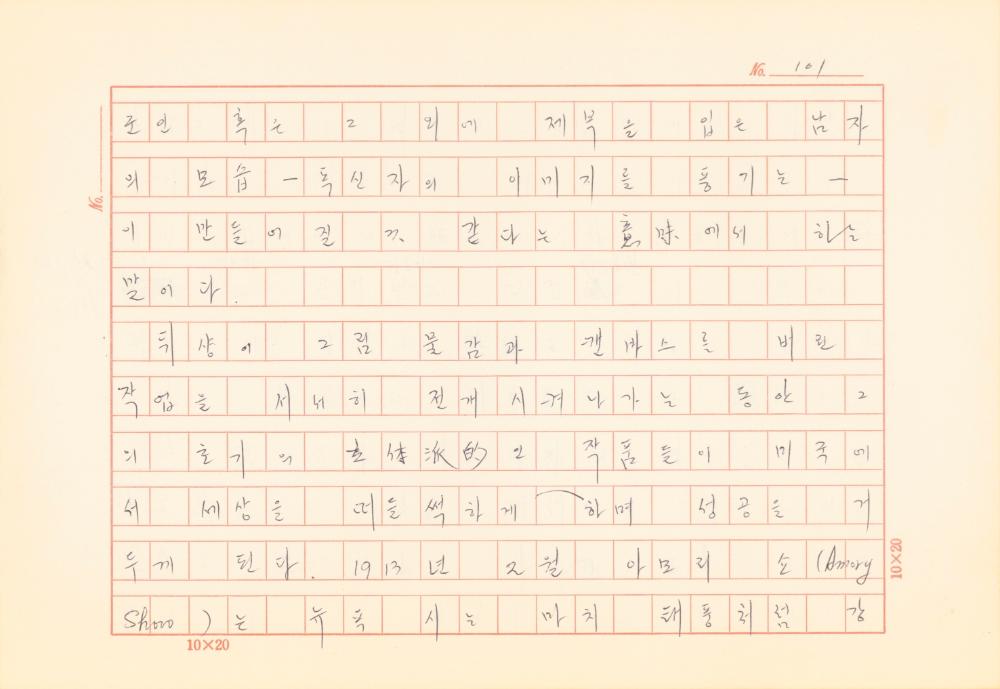 No. 101
군인 혹은 그 외에 제복을 입은 남자
의 모습 — 독신자의 이미지를 풍기는 —
No.
이 만들어질 것 같다는 意味에서 하는
말이다.
뒤샹이 그림 물감과 캔바스를 버린
작업을 서서히 전개 시켜나가는 동안 그
의 초기의 立体派的인 작품들이 미국에
서 세상을 떠들썩하게 하며 성공을 거
두게 된다. 1913년 2월 아모리 쇼 (Amory
Show)는 뉴욕 시는 마치 태풍처럼 강
10×20
10×20